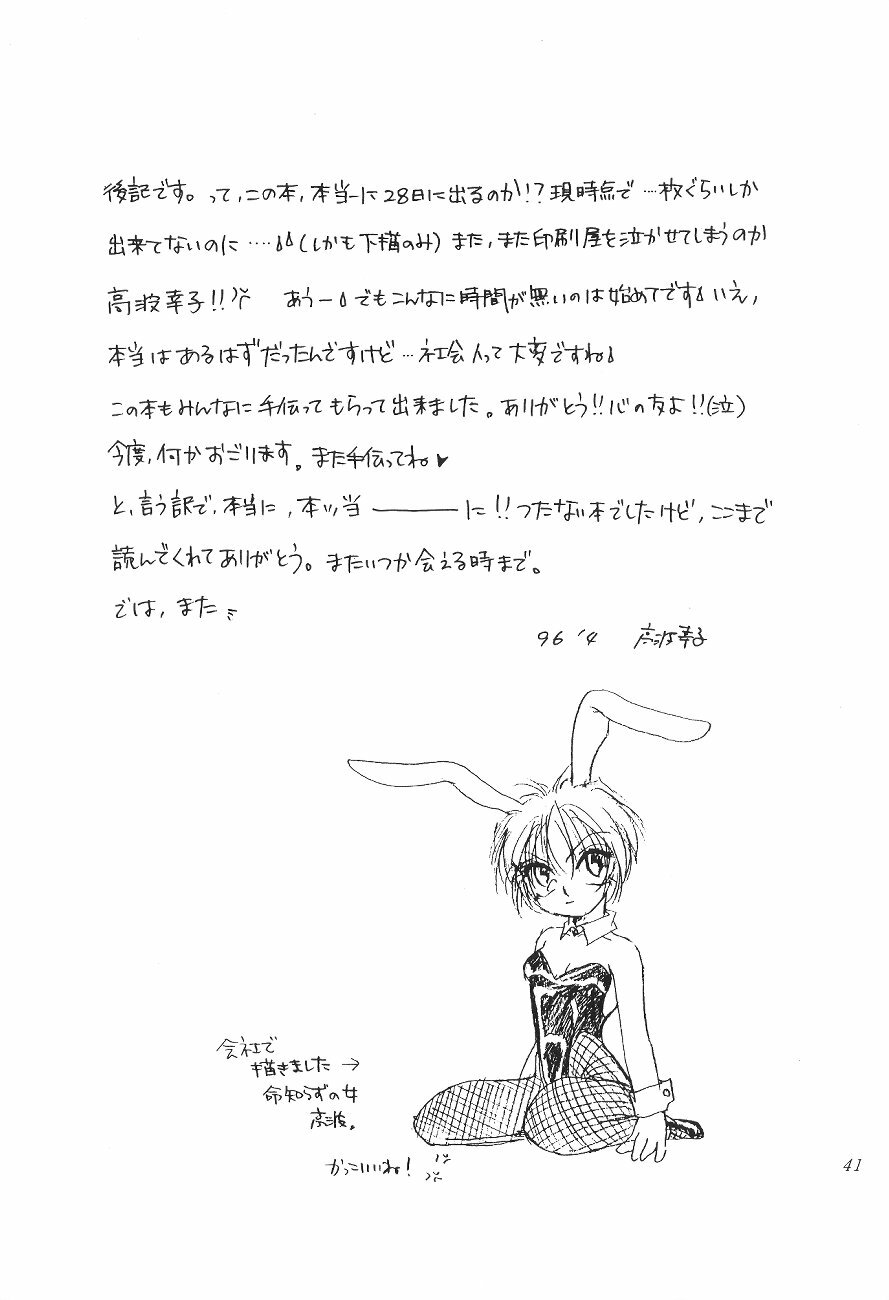 後記です。って、この本、本当に28日に出るのか!?現時点で…枚ぐらいしか
出来てないのに……(しかも下描のみ)また、また印刷屋を泣かせてしまうのか
高波幸子!! あうーでもこんなに時間が無いのは始めてです いえ、
本当はあるはずだったんですけど…社会人って大変ですね
この本もみんなに手伝ってもらって出来ました。ありがとう!!心の友よ!!(泣)
今度、何かおごります。また手伝ってね♥
と、言う訳で、本当に、本ッ当――――に!!つたない本でしたけど、ここまで
読んでくれてありがとう。またいつか会える時まで。
では、また
96 '4 高波幸子
会社で
描きました→
命知らずの女
高波。
かっこいいね!
41